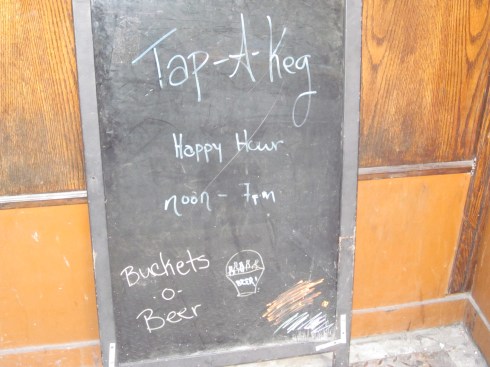 Tap-A-Keg
Happy Hour
noon - 7pm
Buckets
-o-
Beer
BEER!